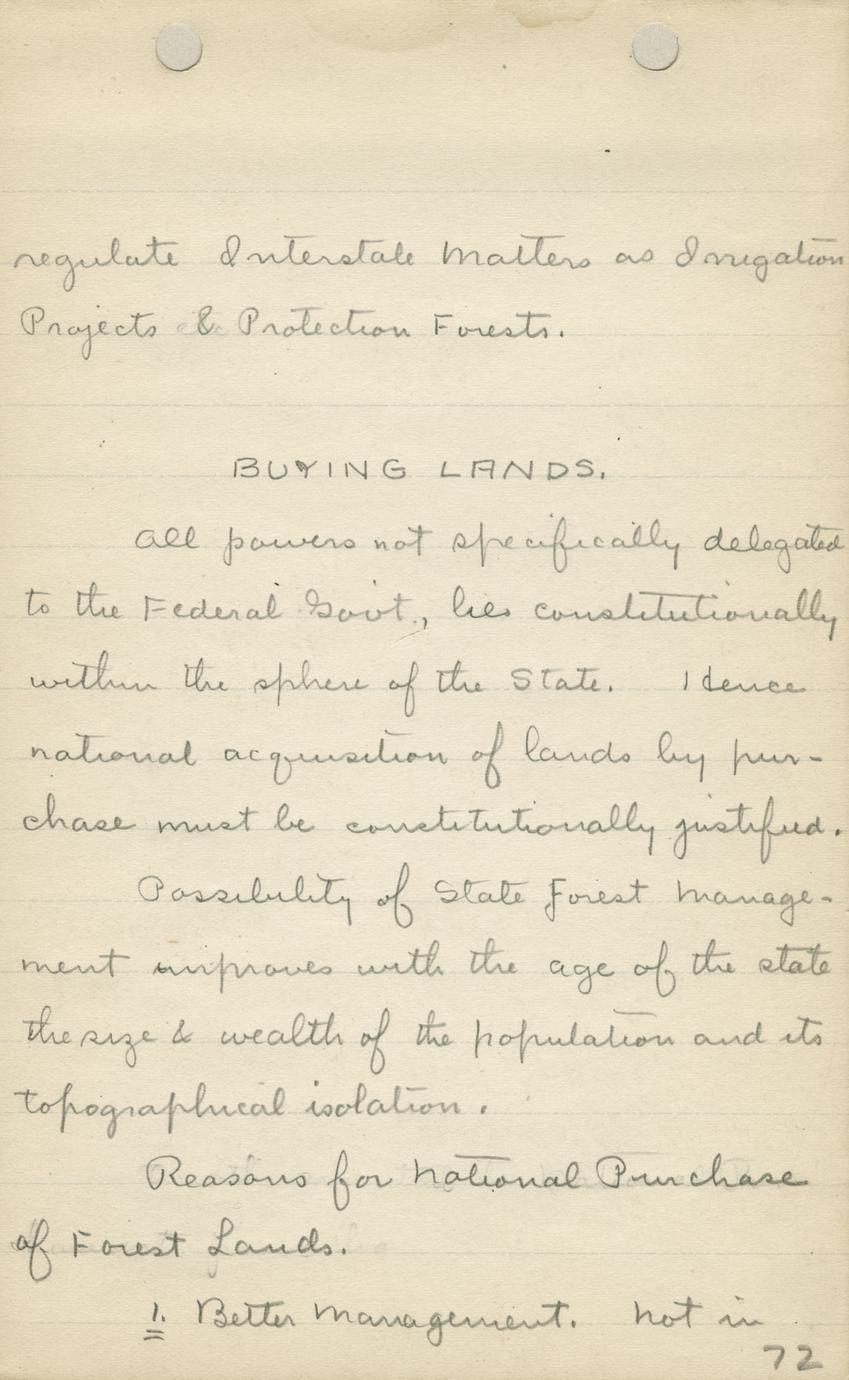 regulate Interstate Matters as Irrigation
Projects & Protection Forests.
BUYING LANDS.
All powers not specifically delegated
to the Federal Gov't., lies constitutionally
within the sphere of the State. Hence
national acquisition of lands by pur-
chase must be constitutionally justified.
Possibility of State Forest Manage-
ment improves with the age of the state
the size & wealth of the population and its
topographical isolation.
Reasons for National Purchase
of Forest Lands.
1. Better Management. Not in
72